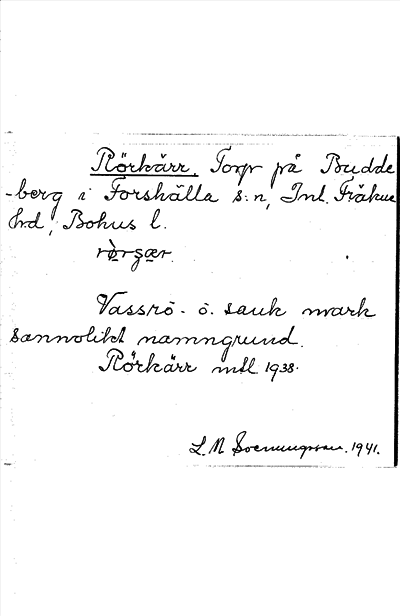 Rörkärr. Torp på Budde
-berg i Forshälla s:n, Inl. Fräkne
hrd, Bohus l.
rö̀rçær.
Vassrö- o. sank mark
sannolikt namngrund.
Rörkärr mtl 1938.
L. M. 1941.